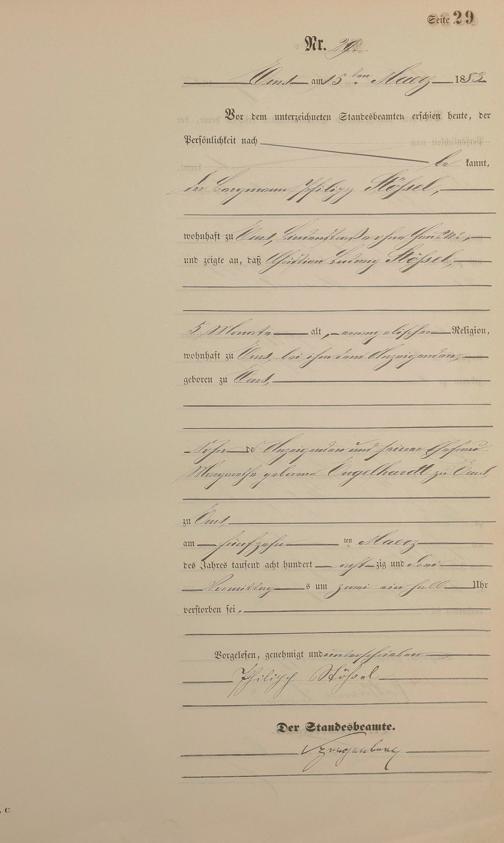 Seite 29
Nr. 29
Ems am 15ten Maerz 1883
Vor dem unterzeichneten Standesbeamten erschien heute, der
Persönlichkeit nach
be kannt,
der Bergmann Philipp Stößel,
wohnhaft zu Ems, ohne
und zeigte an, daß Christian Ludwig Stößel,
5 Monate alt, evangelischer Religion,
wohnhaft zu Ems, bei ihm dem Anzeigenden,
geboren zu Ems,
Sohn des Anzeigenden und seiner Ehefrau
Margarethe geborene Engelhardt zu Ems
zu Ems
am fünfzehnten Maerz
des Jahres tausend acht hundert achtzig und drei
Vormittags um zwei ein halb Uhr
verstorben sei.
Vorgelesen, genehmigt und unterschrieben
Philipp Stößel
Der Standesbeamte.